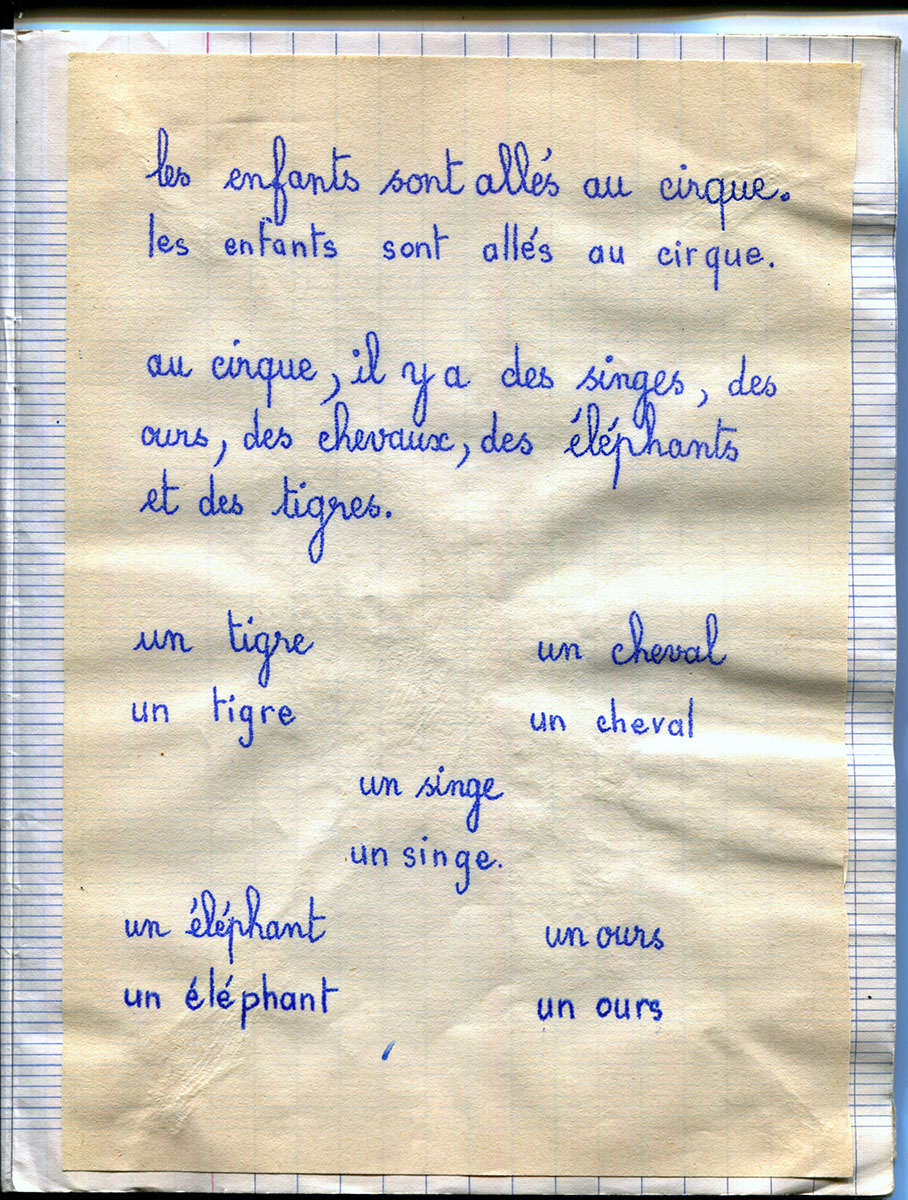 les enfants sont allés au cirque.
les enfants sont allés au cirque.
au cirque, il y a des singes, des
ours, des chevaux, des éléphants
et des tigres.
un tigre
un cheval
un tigre
un cheval
un singe
un singe.
un éléphant
un ours
un éléphant
un ours